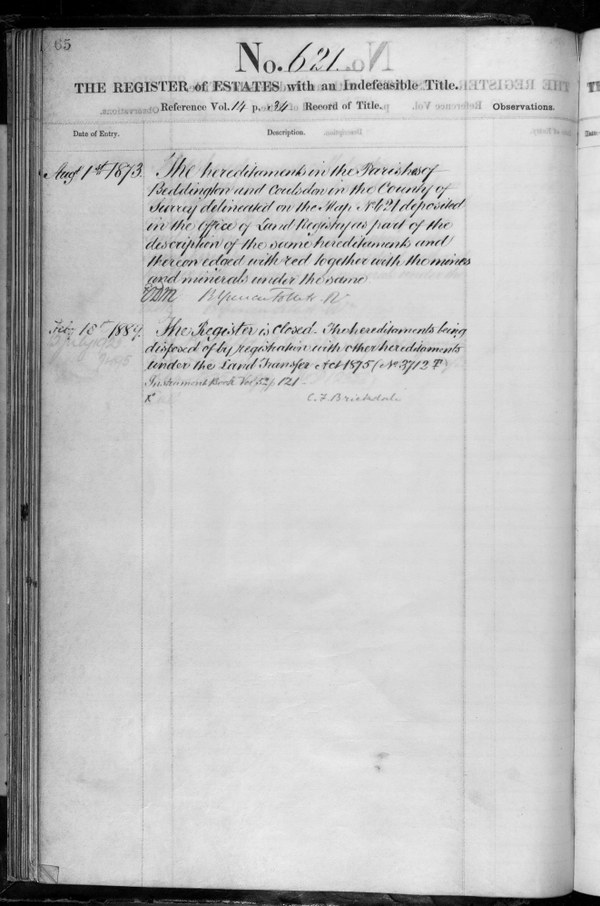 65
No. 621
THE REGISTER of ESTATES with an Indefeasible Title.
Reference Vol. 14 p. 24 Record of Title.
Observations.
Date of Entry.
Description.
Augt 1st 1873.
The hereditaments in the Parishes of
Beddington and Coulsdon in the County of
Surrey delineated on the Map No 621 deposited
in the Office of Land Registry as part of the
description of the same hereditaments and
thereon edged with red together with the mines
and minerals under the same
B Spencer Follett R
1889.
The Register is closed. The hereditaments being
disposed of by registration with other hereditaments
under the Land Transfer Act 1875 (No 3712
Instrument Book Vol 52 p. 121
C. F. Brickdale